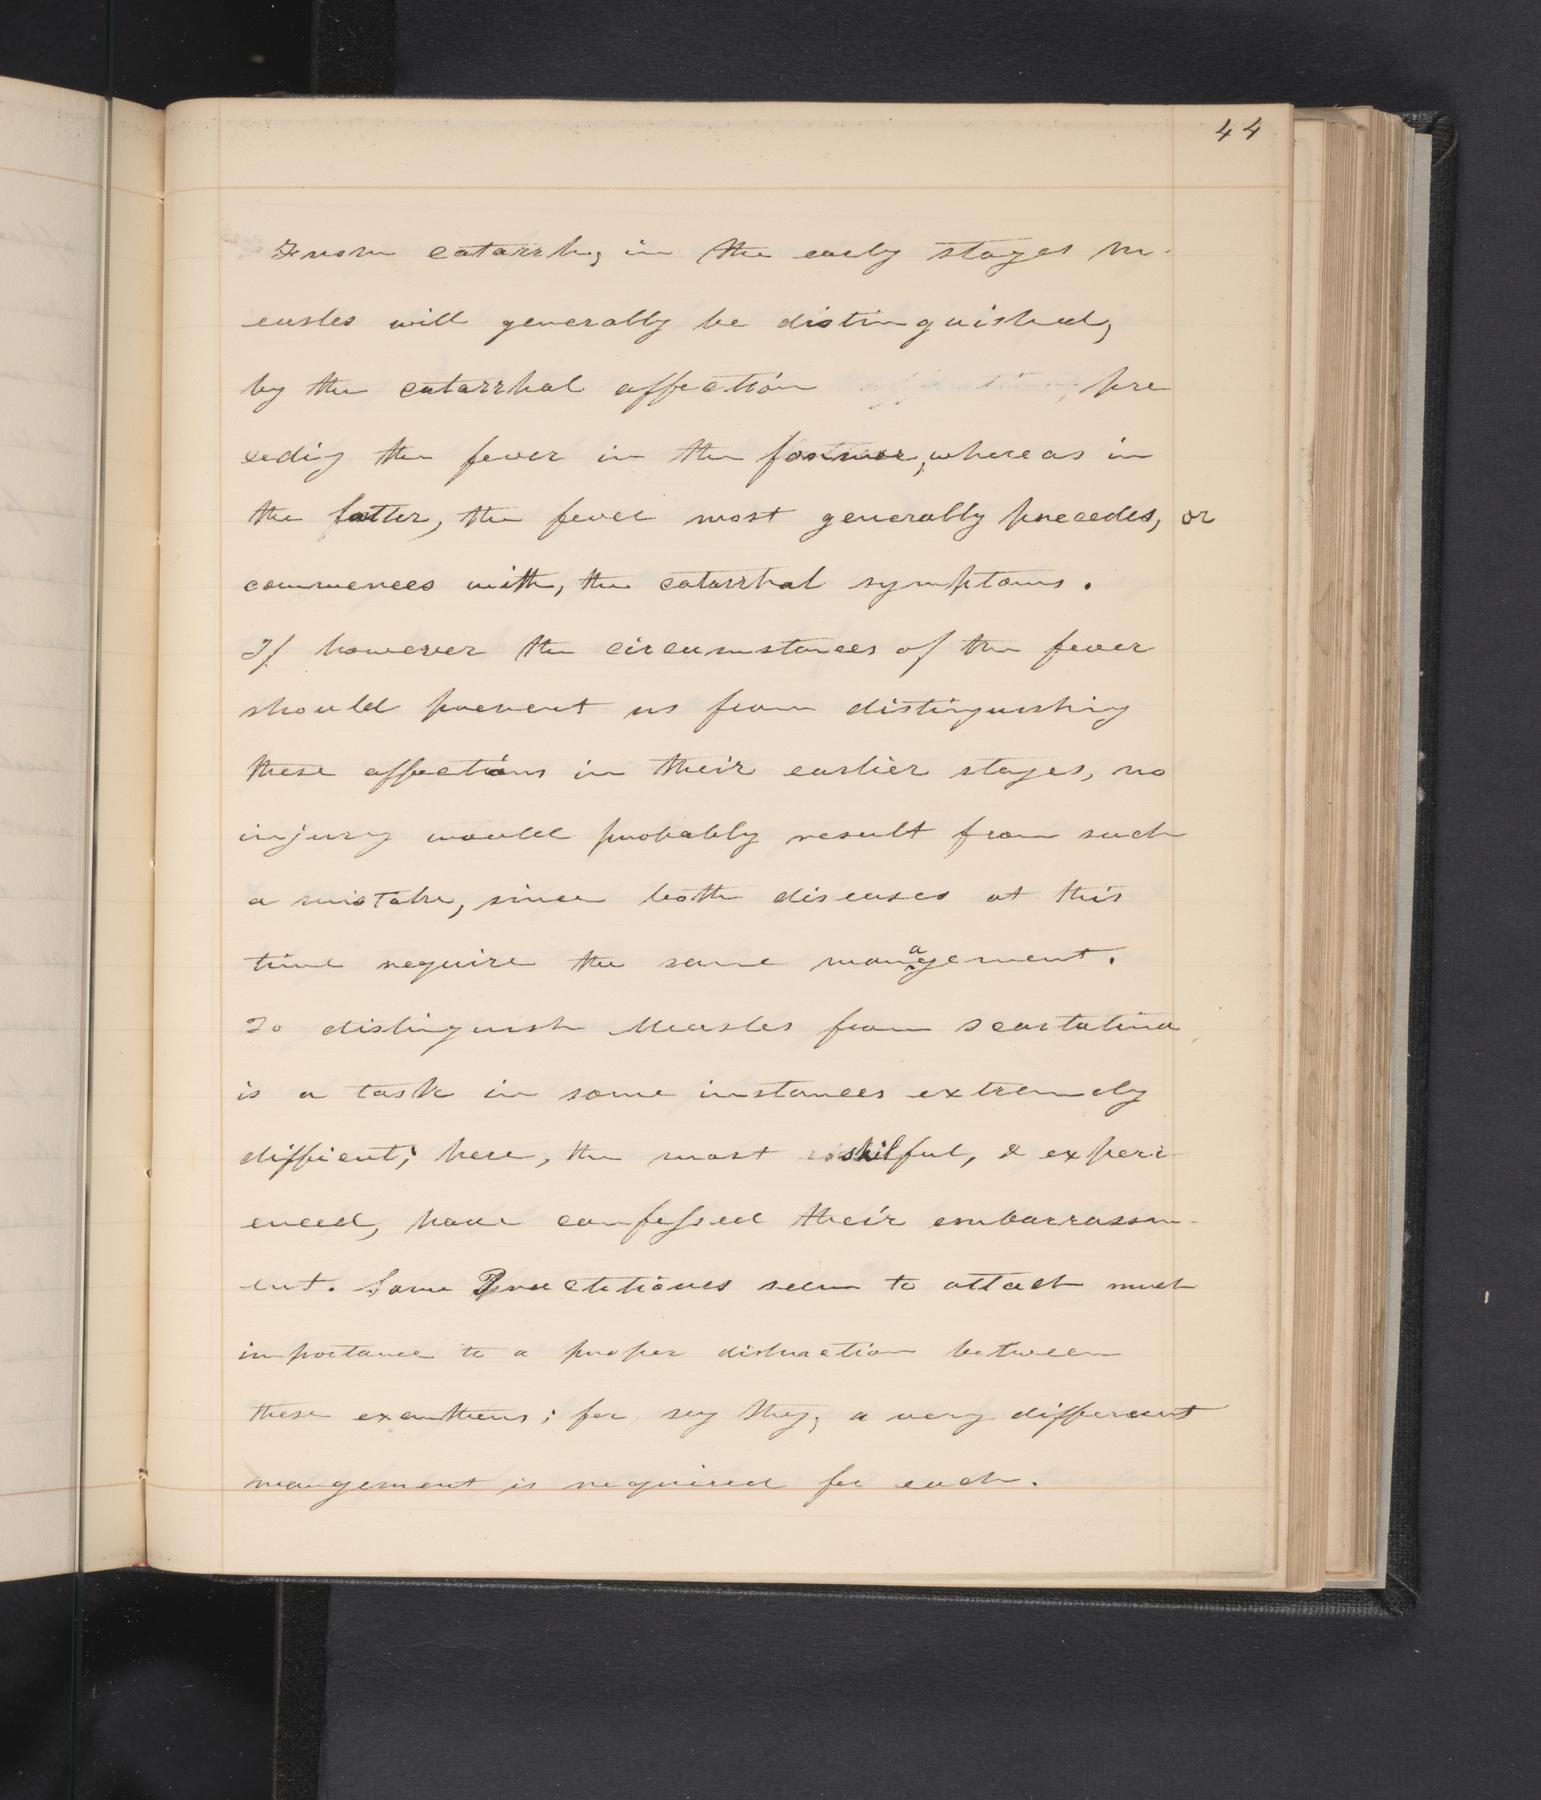 44
From catarrh, in the early stages me-
easles will generally be distinguished,
by the catarrhal affection pre
ceding the fever in the former, whereas in
the latter, the fever most generally precedes, or
commences with, the catarrhal symptoms.
If however the circumstances of the fever
should prevent us from distinguishing
these affections in their earlier stages, no
injury would probably result from such
a mistake, since both diseases at this
time require the same management.
To distinguish Measles from Scarlatina
is a task in some instances extremely
difficult; here, the most skilful, & experi
enced, have confessed their embarrassm-
ent. Some Practitioners seem to attach much
importance to a proper distinction between
these exanthems; for say they, a very different
mangement is required for each.